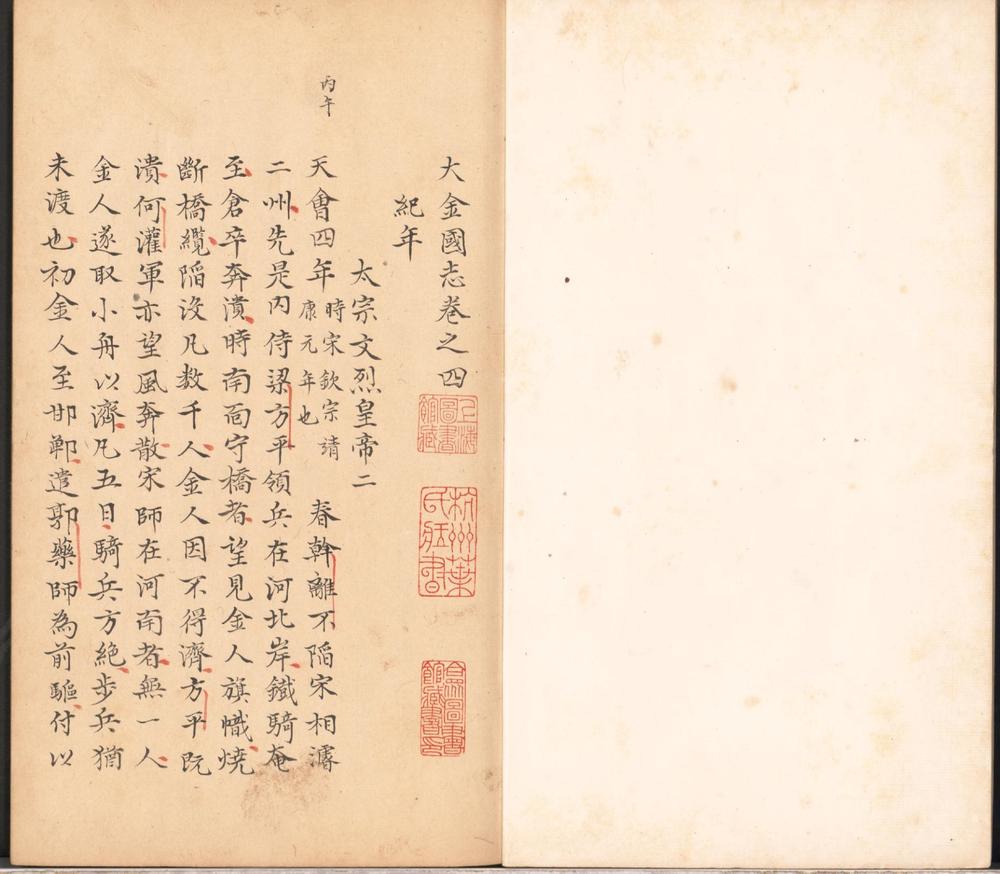 大金國志卷之四
紀年
太宗文烈皇帝二
丙午
天會四年時宋欽宗靖康元年也春斡離不陷宋相濬
二州先是內侍梁方平領兵在河北岸鐵騎奄
至倉卒奔潰時南面守橋者望見金人旗幟燒
斷橋纜陷沒凡數千人金人因不得濟方平既
潰何灌軍亦望風奔散宋師在河南者無一人
金人遂取小舟以濟凡五日騎兵方絕步兵猶
未渡也初金人至邯鄲遣郭藥師為前驅付以
上海圖書館藏
杭州葉氏藏書
合眾圖書館藏書印